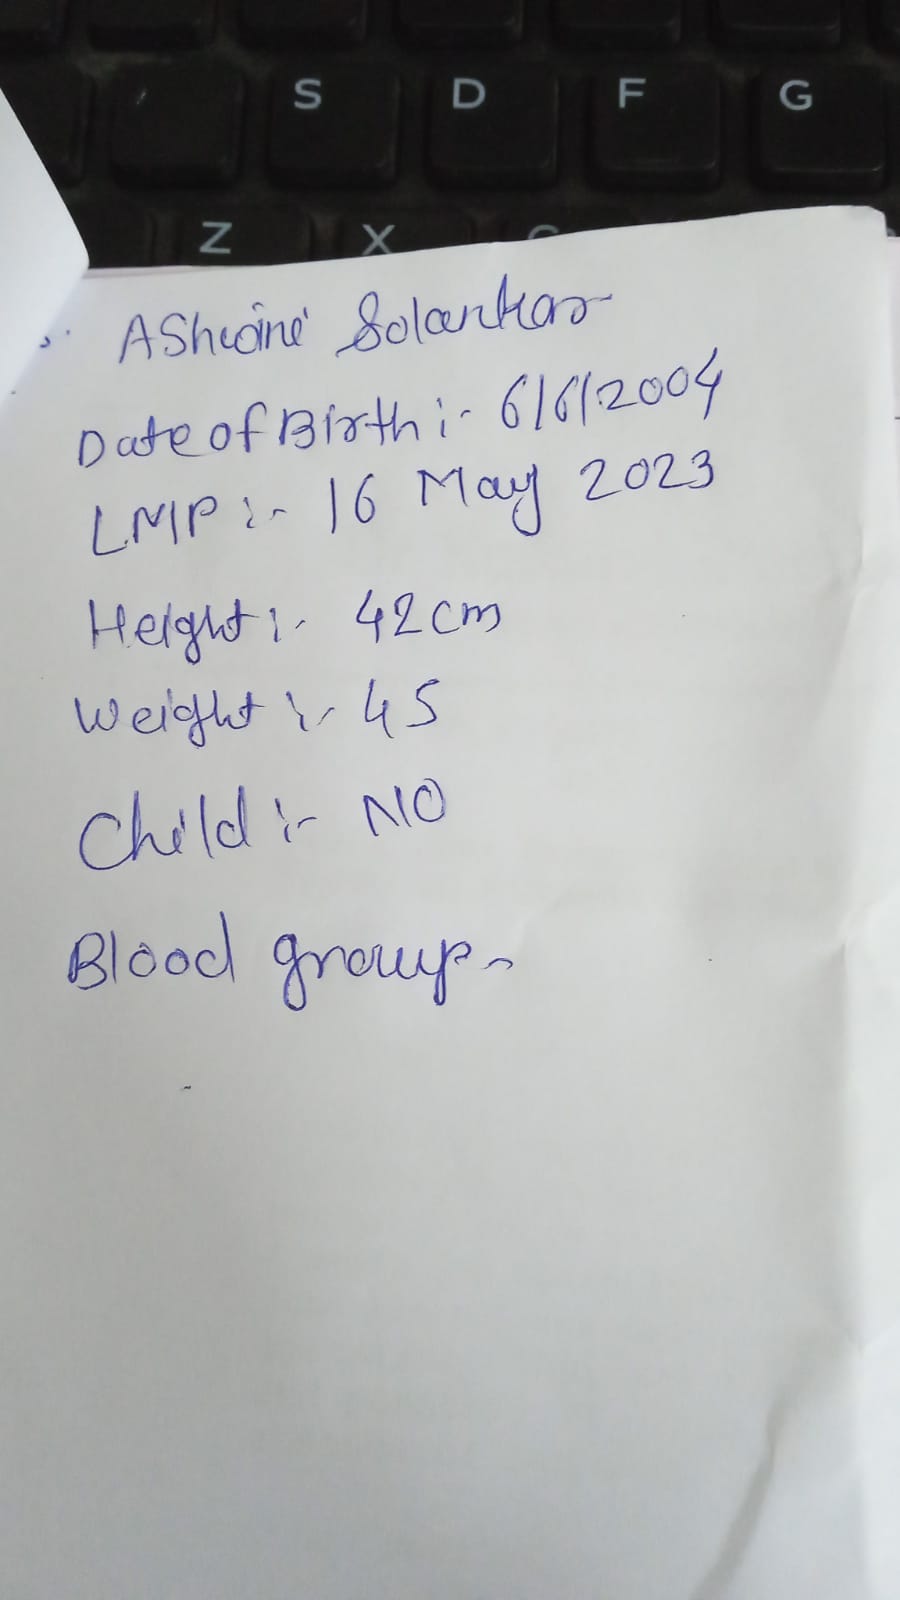 S D F G
Z X C
Ashwini Solankar
Date of Birth :- 6/6/2004
LMP :- 16 May 2023
Height :- 42cm
Weight :- 45
Child :- NO
Blood group -